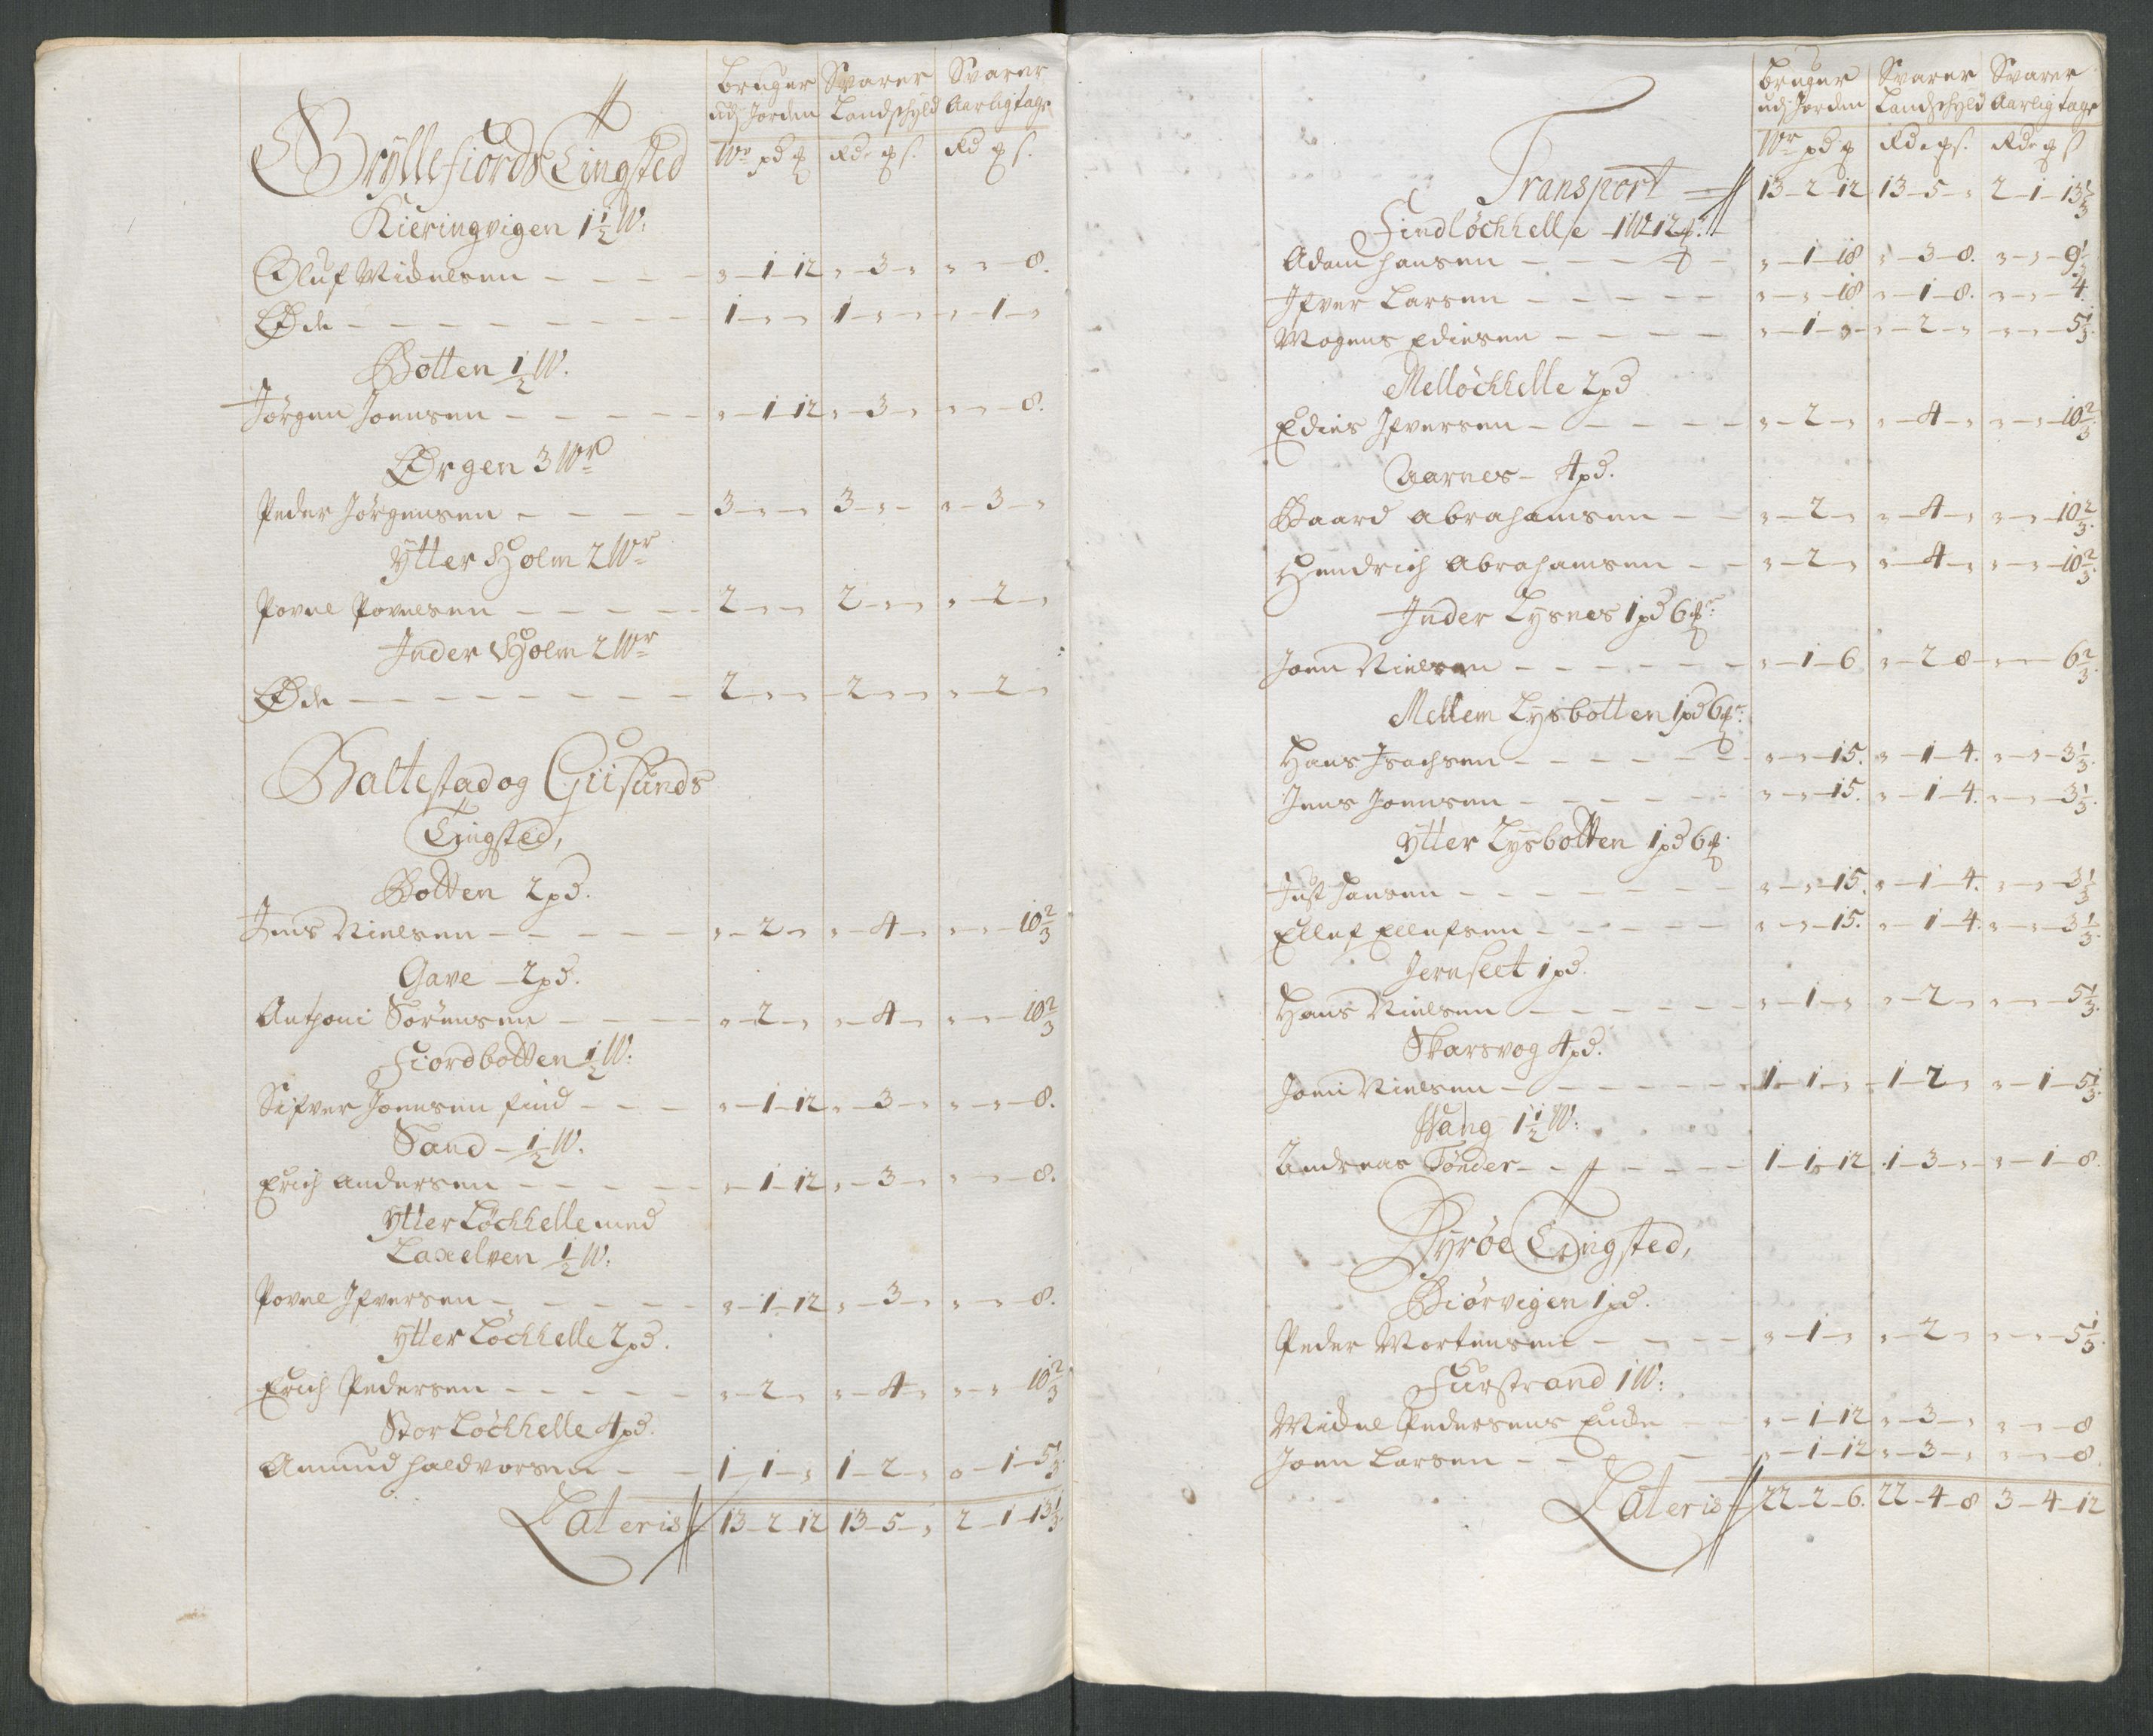 bruger Svarer Svarer
udj Jorden Landschyld Aarlig tage
Gryllefiords Tingsted Wr pd Rd s. Rd s.
Kieringvigen 1½ W:
Oluf Michelsen - - - „-1-12 „-3-„ „-„-8.
Øde - - - - - - - - 1-„-„ 1-„-„ „-1-„
Botten ½ W.
Jørgen Joensen - - - - - „-1-12 „-3-„ „-„-8.
Ørgen 3 Wr
Peder Jørgensen - - - - - 3-„-„ 3-„-„ „-3-„
Ytter Holm 2 Wr
Povel Povelsen - - - - - 2-„-„ 2-„-„ „-2-„
Inder Holm 2 Wr
Øde - - - - - - - - 2-„-„ 2-„-„ „-2-„
Baltestad og Giisunds
Tingsted,
Botten 2 pd.
Jens Nielsen - - - - - „-2-„ „-4-„ „-„-10⅔
Gave - 2 pd.
Anthoni Sørensen - - - - „-2-„ „-4-„ „-„-10⅔
Fiordbotten ½ W:
Sifver Joensen find - - - „-1-12 „-3-„ „-„-8.
Sand - ½ W.
Erich Andersen - - - - - „-1-12 „-3-„ „-„-8.
Ytter Løchhelle med
Laxelven ½ W:
Povel Ifversen - - - - - „-1-12 „-3-„ „-„-8.
Ytter Løchhelle 2 pd.
Erich Pedersen - - - - - „-2-„ „-4-„ „-„ 10⅔
Stor Løchhelle 4 pd.
Amund Haldvorsen - - 1-1-„ 1-2-„ „-1-5⅓.
Lateris 13-2-12 13-5-„ 2-1-13⅓.
bruger Svarer Svarer
udj Jorden Landschyld Aarlig tage
Wr pd Rd s. Rd s
Transport 13-2-12 13-5-„ 2-1-13⅓
Findløchhelle - 1 W 12
Adam Hansen - - - - - „-1-18 „-3-8. „-„-9⅓
Ifver Larsen - - - - - „-„-18 „-1-8. „-„-4
Mogens Ediesen - - - - „-1-„ „-2-„ „-„-5⅓.
Melløchhelle 2 pd
Edies Ifversen - - - - - „-2-„ „-4-„ „-„-10⅔
Aarnes - 4 pd.
Baard Abrahamsen - - „-2-„ „-4-„ „-„-10⅔.
Hendrich Abrahamsen - - „-2-„ „-4-„ „-„-10⅔.
Inder Lysnes 1 pd 6
Joen Nielsen - - - - - - „-1-6 „-2-8 „-„ 6⅔.
Mellem Lysbotten 1 pd 6
Hans Isachsen - - - - - - „-„-15. „-1-4. „-„-3⅓.
Jens Joensen - - - - - - „-„-15. „-1-4. „-„-3⅓.
Ytter Lysbotten 1 pd 6
Just Hansen - - - - - - „-„-15. „-1-4. „-„-3⅓
Ellef Ellefsen - - - - - „-„-15. „-1-4. „-„-3⅓.
Jernslet 1 pd.
Hans Nielsen - - - - - - „-1-„ „-2-„ „-„-5⅓.
Skarsvog 4 pd.
Joen Nielsen - - - - - - 1-1-„ 1-2-„ „-1-5⅓.
Wang 1½ W:
Andreas Tønder - - - - - 1-1-12 1-3-„ „-1-8.
Dyrøe Tingsted,
Biørvigen 1 pd.
Peder Mortensen - - - - „-1-„ „-2-„ „-„-5⅓.
Furstrand 1 W:
Michel Pedersens Encke - „-1-12 „-3-„ „-„-8
Joen Larsen - - - - „-1-12 „-3-„ „-„-8.
Lateris 22-2-6. 22-4-8 3-4-12